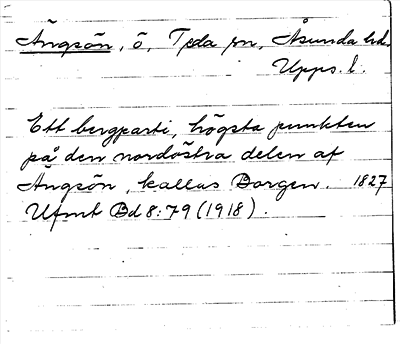 Ängsön, ö, Tpda sn, Åsunda hd.
Upps. l.
Ett bergparti, högsta punkten
på den nordöstra delen af
Ängsön, kallas Borgen. 1827
Ufmt Bd 8:79 (1918).